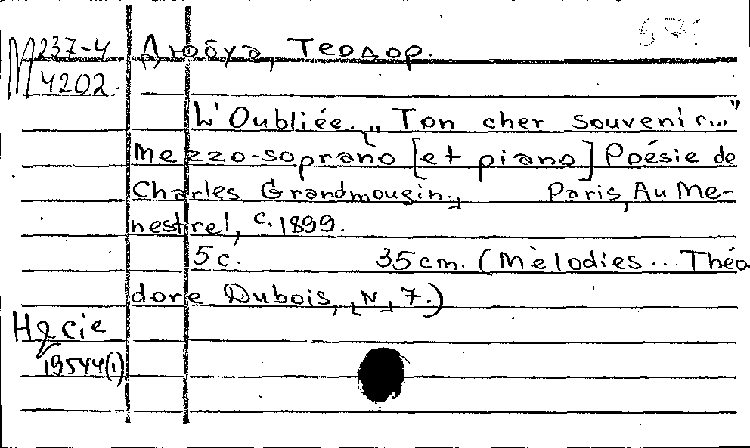 М 237-4
4202
Дюбуа, Теодор.
L'Oubliée. „Ton cher souvenir..."
Mezzo-soprano [et piano] Poésie de
Charles Grandmougin. Paris, Au Me-
nestrel, c. 1899.
5 с. 35 cm. (Mèlodies... Théo
dore Dubois, N, 7.)
19544(1)